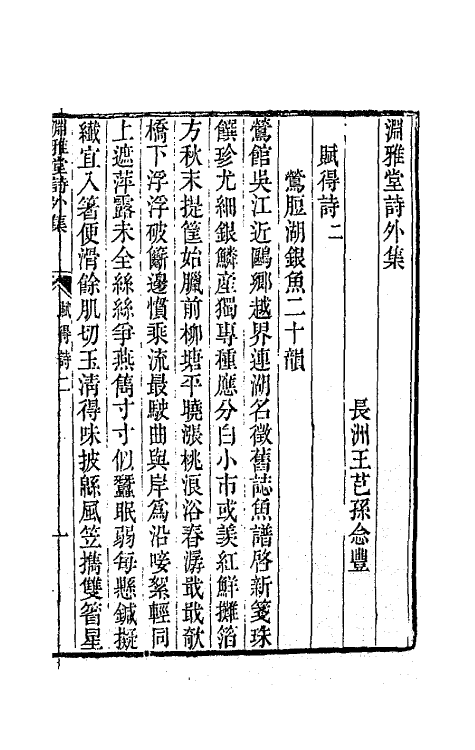 淵雅堂詩外集
長洲王芑孫念豐
賦得詩二
鶯脰湖銀魚二十韻
鶯館吳江近鷗鄉越界連湖名徵舊誌魚譜啓新箋珠
饌珍尤細銀鱗產獨專種應分白小市或羡紅鮮攤箔
方秋末提筐始臘前柳塘平曉漲桃浪浴春潺戢戢欹
橋下浮浮破籪邊慣乘流最駛曲與岸爲沿唼絮輕同
上遮萍露未全絲絲爭燕雋寸寸似蠶眠弱每懸鍼擬
纖宜入箸便滑餘肌切玉清得味披緜風笠攜雙笞星
淵雅堂詩外集
賦得詩二
一